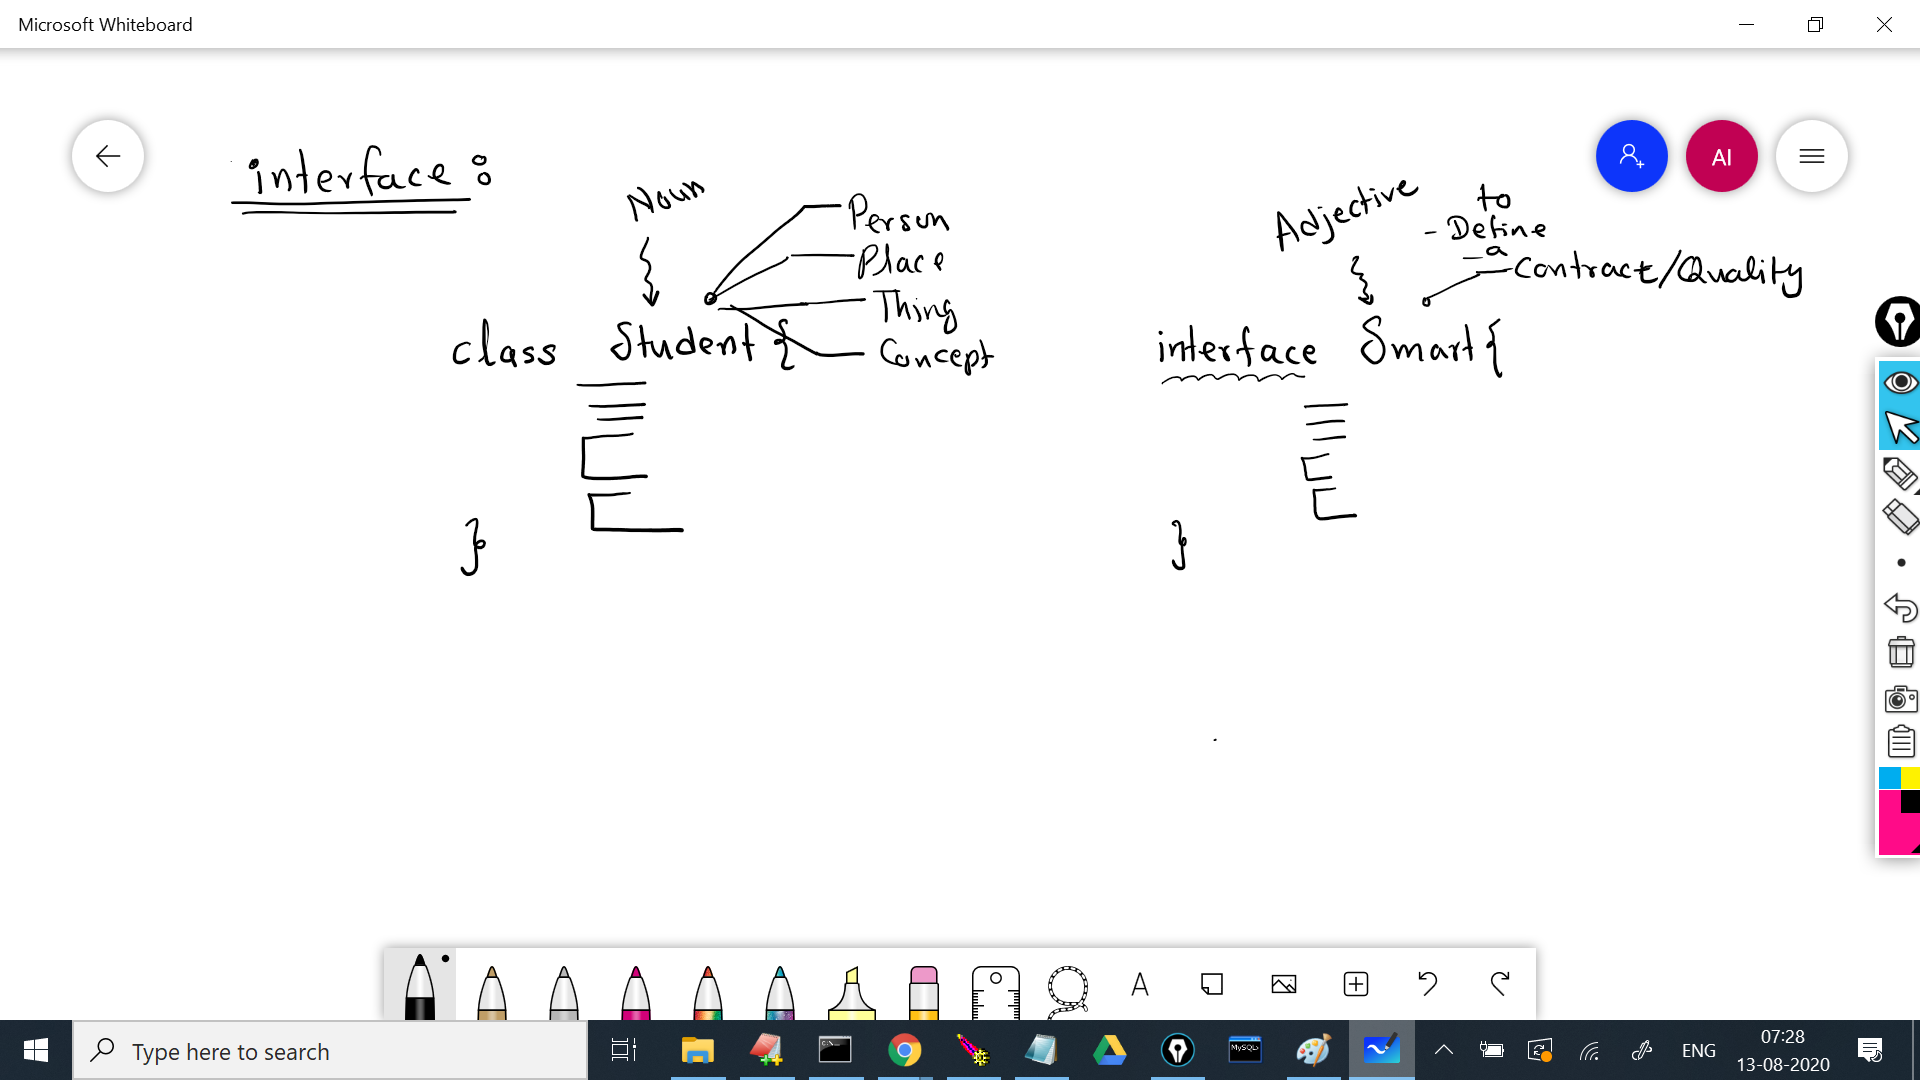 Microsoft Whiteboard
AI
interface :
Noun
Person
Place
Thing
Concept
class Student {
}
Adjective
to
- Define
- a
Contract/Quality
interface Smart {
}
A
Type here to search
MySQL
ENG
07:28
13-08-2020